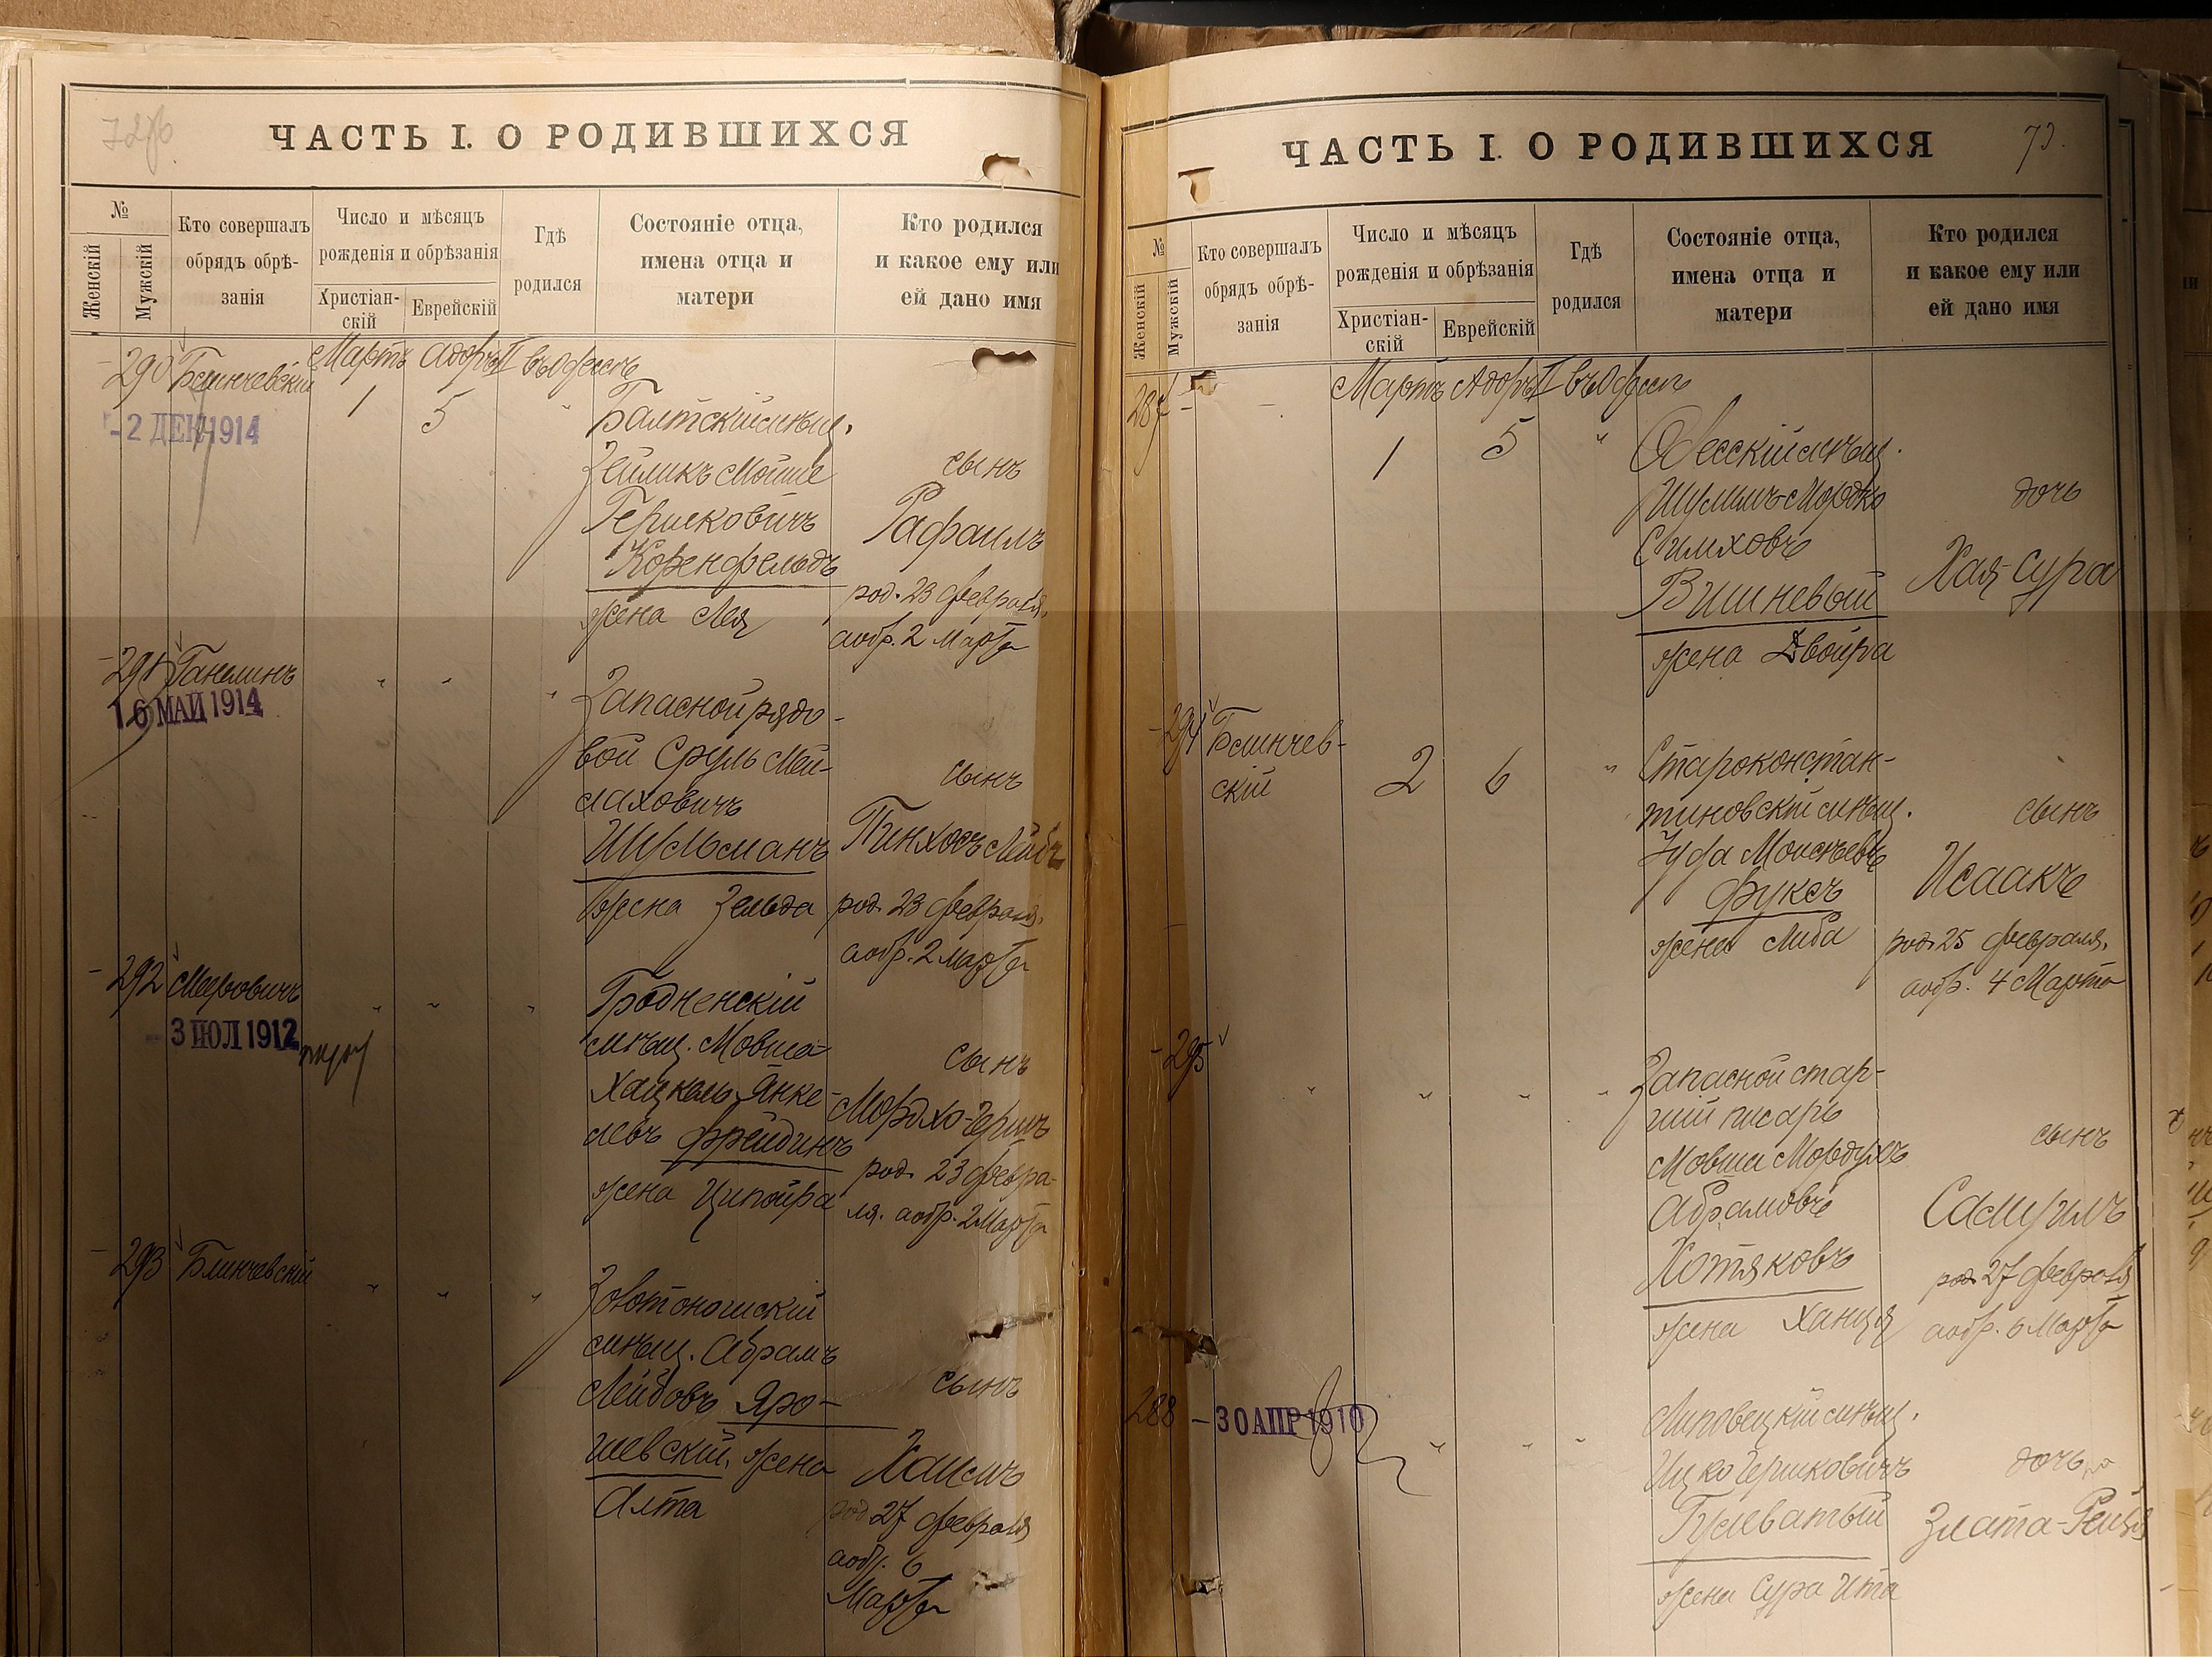 72об
ЧАСТЬ I. О РОДИВШИХСЯ
№
Женскій
Мужскій
Кто совершалъ
обрядъ обрѣ-
занія
Число и мѣсяцъ
рожденія и обрѣзанія
Христіан-
скій
Еврейскій
Гдѣ
родился
Состояніе отца,
имена отца и
матери
Кто родился
и какое ему или
ей дано имя
290 Блинчевскій Мартъ Адаръ II въ Одессѣ
1 5 " Балтскій мѣщ.
-2 ДЕК 1914
Зейликъ Мошке сынъ
Гершковичъ Рафаилъ
Коренфельдъ
жена Лея род. 23 февраля,
а обр. 2 Марта
291 Ганелинъ " " " Запасной рядо-
16 МАЙ 1914
вой Сруль Мей-
лаховичъ сынъ
Шульманъ Пинхосъ Лейбъ
жена Зельда род. 23 февраля,
а обр. 2 Марта
292 Меерович " " " Гродненскій
-3 ІЮЛ 1912
мѣщ. Мовша- сынъ
Хацкель Янке- Мордхо-Гершъ
левъ Фрейдинъ
жена Ципойра род. 23 февра-
ля, а обр. 2 Марта
293 Блинчевскій " " " Золотоношскій
мѣщ. Абрамъ
Лейбовъ Яро- сынъ
шевскій, жена Хаимъ
Алта род. 27 февраля
а обр. 6
Марта
73.
ЧАСТЬ I. О РОДИВШИХСЯ
№
Женскій
Мужскій
Кто совершалъ
обрядъ обрѣ-
занія
Число и мѣсяцъ
рожденія и обрѣзанія
Христіан-
скій
Еврейскій
Гдѣ
родился
Состояніе отца,
имена отца и
матери
Кто родился
и какое ему или
ей дано имя
287 - - Мартъ Адаръ II въ Одессѣ
1 5 " Одесскій мѣщ.
Шулимъ-Мордко дочь
Симховъ
Вишневый Хая-Сура
жена Двойра
294 Блинчев-
скій 2 6 " Староконстан-
тиновскій мѣщ. сынъ
Іуда Моисѣевъ
Фуксъ Исаакъ
жена Либа род. 25 февраля,
а обр. 4 Марта
295 " " " " Запасной стар-
шій писарь
Мовша Мордухъ сынъ
Абрамовъ Самуилъ
Хотяковъ род. 27 февраля
жена Ханця а обр. 6 Марта
288 -30 АПР 1910 " " " Липовецкій мѣщ.
Ицко Гершковичъ дочь
Гулеватый Злата-Рейзя
жена Сура Ита